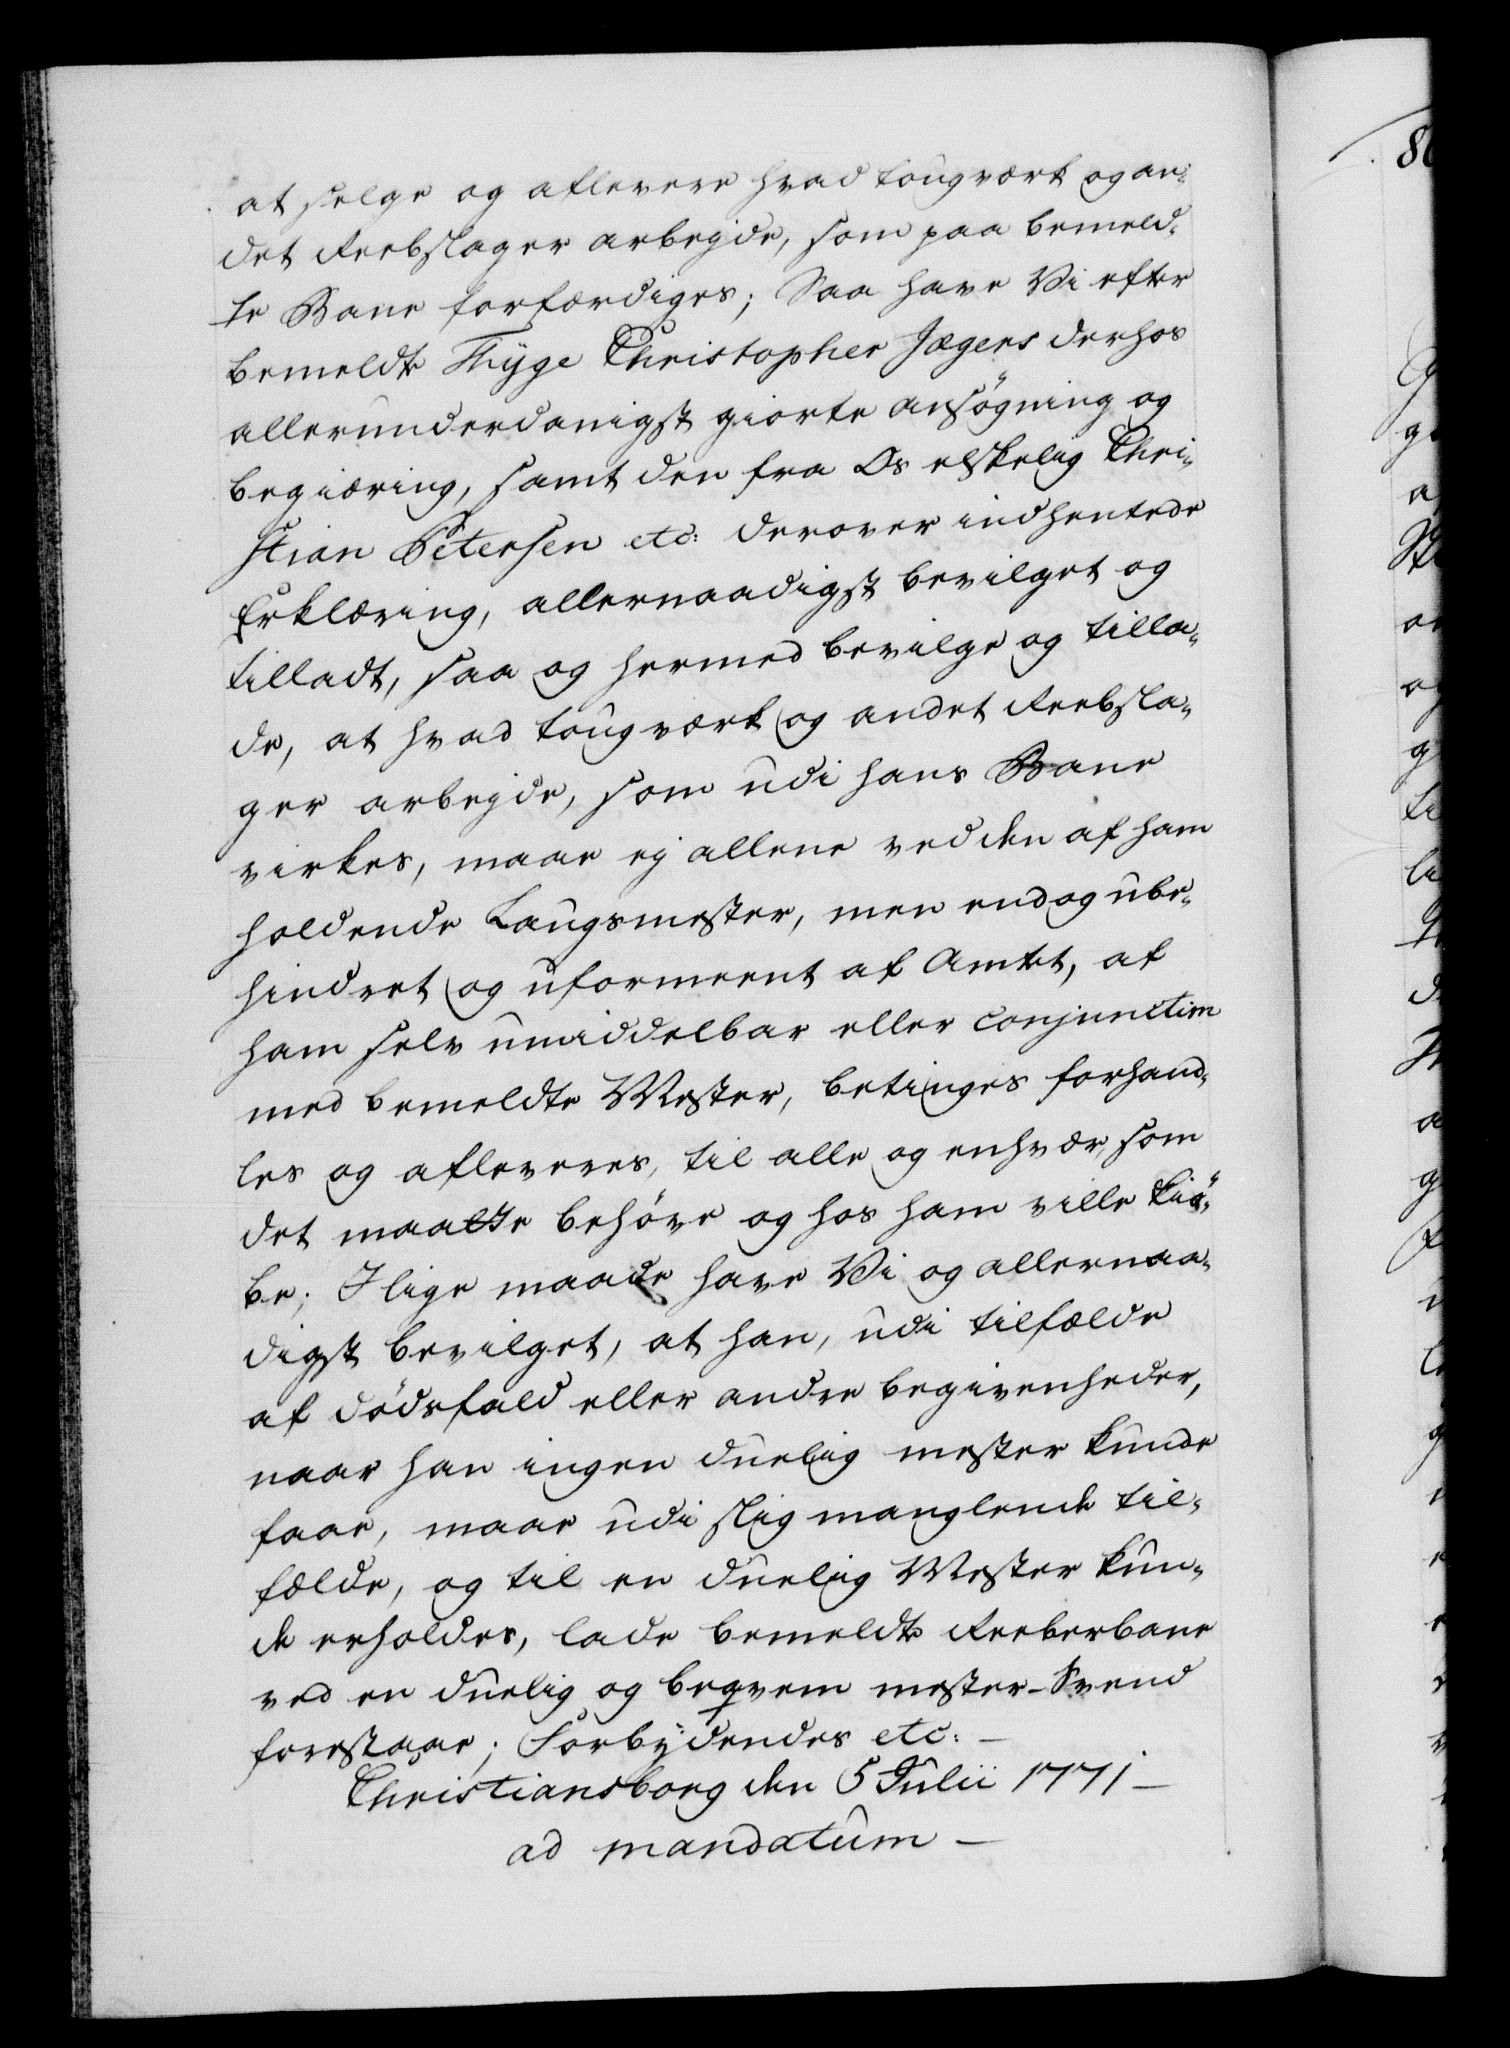 at selge og aflevere hvad tougværk og an-
det Reebslager arbejde, som paa bemeld-
te Bane forfærdiges; Saa have Vi efter
bemeldte Thÿge Christopher Jægers derhos
allerunderdanigst giorte ansøgning og
begiæring, samt den fra Os elskelig Chri-
stian Petersen etc: derover indhentede
Erklæring, allernaadigst bevilget og
tilladt, saa og hermed bevilge og tilla-
de, at hvad tougværk og andet Reebsla-
ger arbejde, som udi hans Bane
virkes, maae ej allene ved den af ham
holdende Laugsmester, men endog ube-
hindret og uformeent af Amtet, af
ham selv umiddelbar eller conjunctim
med bemeldte Mester, betinges forhand-
les og afleveres, til alle og enhver, som
det maatte behøve og hos ham ville kiö-
be; Ilige maade have Vi og allernaa-
digst bevilget, at han, udi tilfælde
af dødsfald eller andre begivenheder,
naar han ingen duelig mester kunde
faae, maae udi slig manglende til-
fælde, og til en duelig Mester kun-
de erholdes, lade bemeldte Reeberbane
ved en duelig og beqvem mester-Svend
forestaae; Forbÿdendes etc: –
Christiansborg den 5 Julii 1771 –
ad mandatum –
80